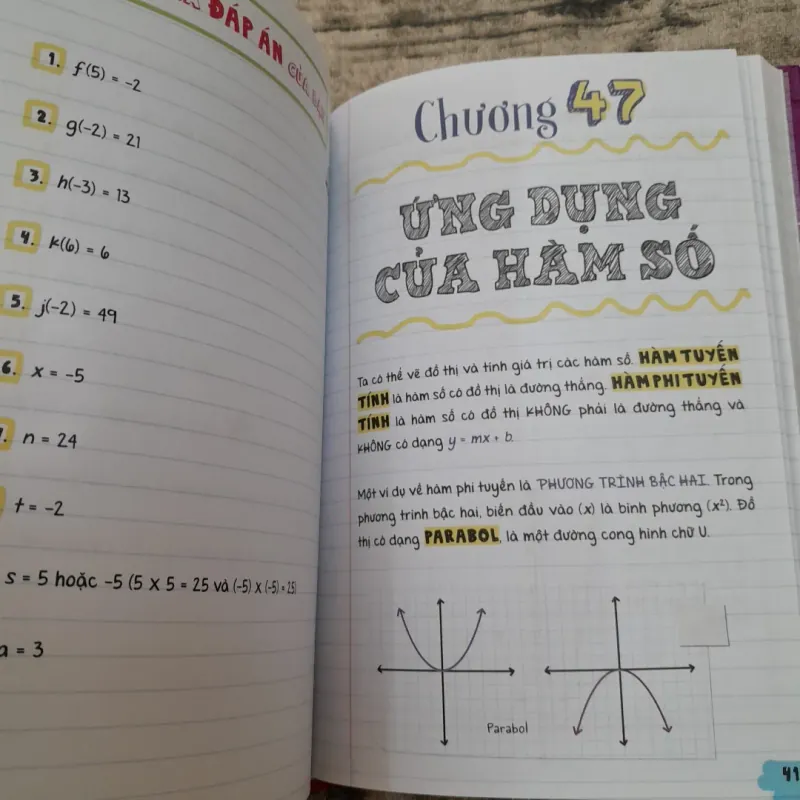 ĐÁP ÁN CỦA
1. f(5) = -2
2. g(-2) = 21
3. h(-3) = 13
4. k(6) = 6
5. j(-2) = 49
6. x = -5
n = 24
t = -2
s = 5 hoặc -5 (5 x 5 = 25 và (-5) x (-5) = 25)
a = 3
Chương 47
ỨNG DỤNG
CỦA HÀM SỐ
Ta có thể vẽ đồ thị và tính giá trị các hàm số. HÀM TUYẾN
TÍNH là hàm số có đồ thị là đường thẳng. HÀM PHI TUYẾN
TÍNH là hàm số có đồ thị KHÔNG phải là đường thẳng và
KHÔNG có dạng y = mx + b.
Một ví dụ về hàm phi tuyến là PHƯƠNG TRÌNH BẬC HAI. Trong
phương trình bậc hai, biến đầu vào (x) là bình phương (x²). Đồ
thị có dạng PARABOL, là một đường cong hình chữ U.
Parabol
41